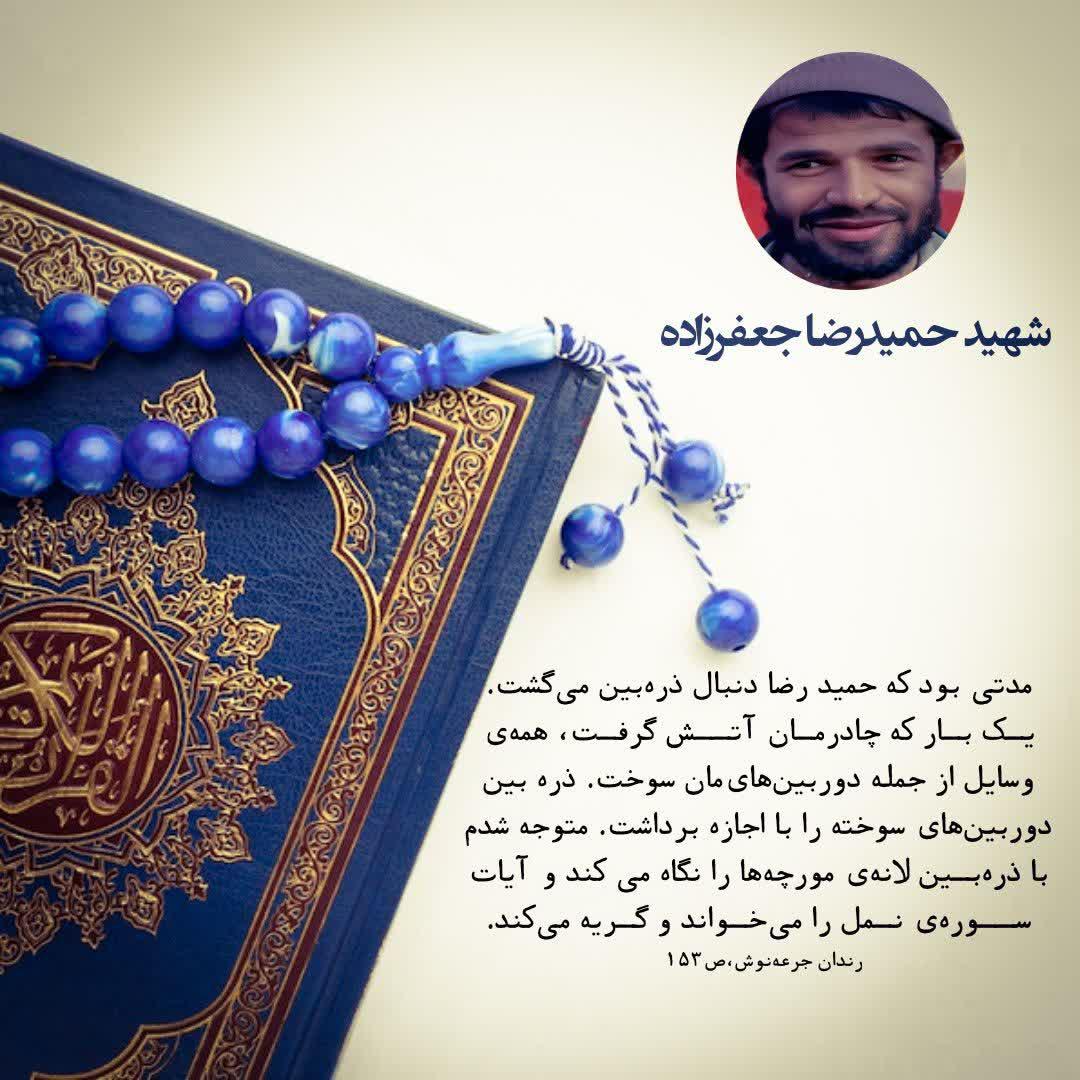 شهید حمیدرضا جعفرزاده
مدتی بود که حمید رضا دنبال ذره‌بین می‌گشت.
یک بار که چادرمان آتش گرفت، همه‌ی
وسایل از جمله دوربین‌های‌مان سوخت. ذره بین
دوربین‌های سوخته را با اجازه برداشت. متوجه شدم
با ذره‌بین لانه‌ی مورچه‌ها را نگاه می کند و آیات
سوره‌ی نمل را می‌خواند و گریه می‌کند.
رندان جرعه‌نوش،ص۱۵۳